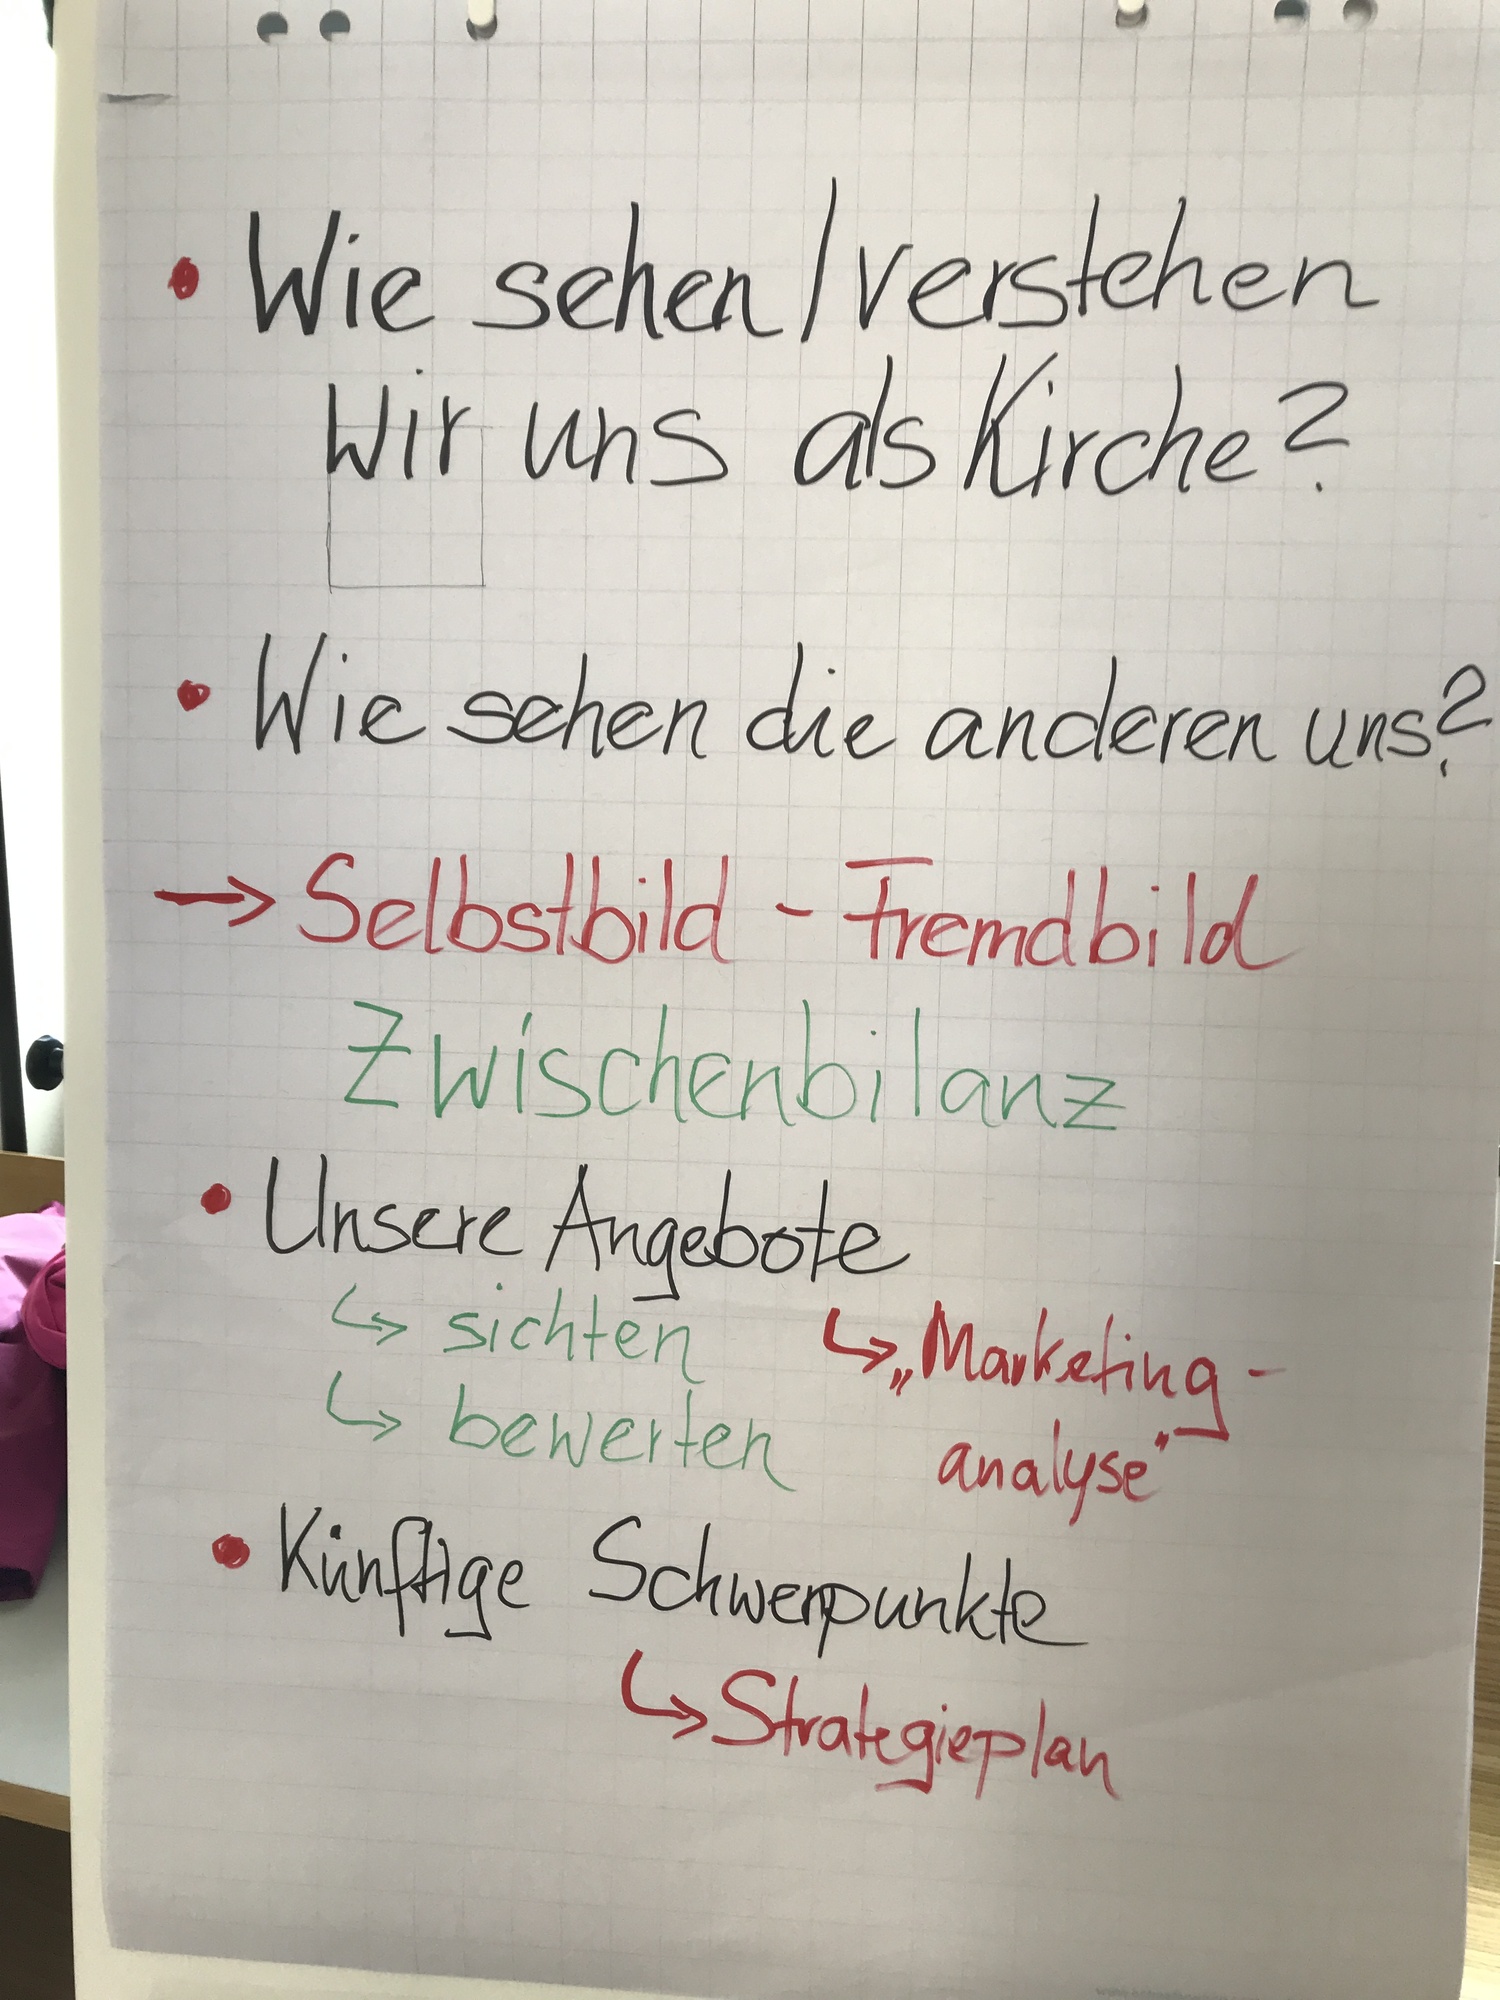 • Wie sehen / verstehen
wir uns als Kirche?
• Wie sehen die anderen uns?
→ Selbstbild - Fremdbild
Zwischenbilanz
• Unsere Angebote
↳ sichten
↳ „Marketing-
↳ bewerten
analyse“
• Künftige Schwerpunkte
↳ Strategieplan